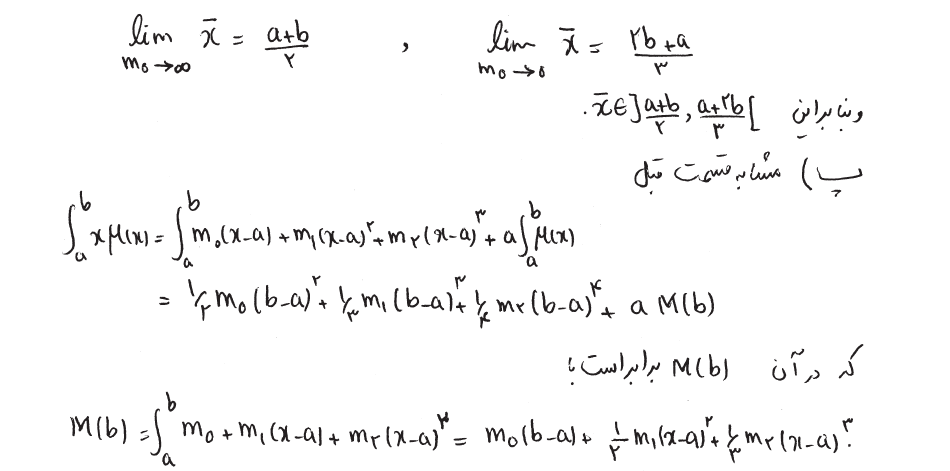 lim_{m₀→∞} x̄ = (a+b)/۲ , lim_{m₀→۰} x̄ = (۲b+a)/۳
وبنابراین x̄ ∈ ](a+b)/۲ , (a+۲b)/۳[ .
پ) مشابه قسمت قبل
∫_a^b xμ(x) = ∫_a^b m₀(x-a) + m₁(x-a)^۲ + m_۲(x-a)^۳ + a∫_a^b μ(x)
= ۱/۲ m₀(b-a)^۲ + ۱/۳ m₁(b-a)^۳ + ۱/۴ m_۲(b-a)^۴ + a M(b)
که در آن M(b) برابر است با
M(b) = ∫_a^b m₀ + m₁(x-a) + m_۲(x-a)^۲ = m₀(b-a) + ۱/۲ m₁(x-a)^۲ + ۱/۳ m_۲(x-a)^۳.